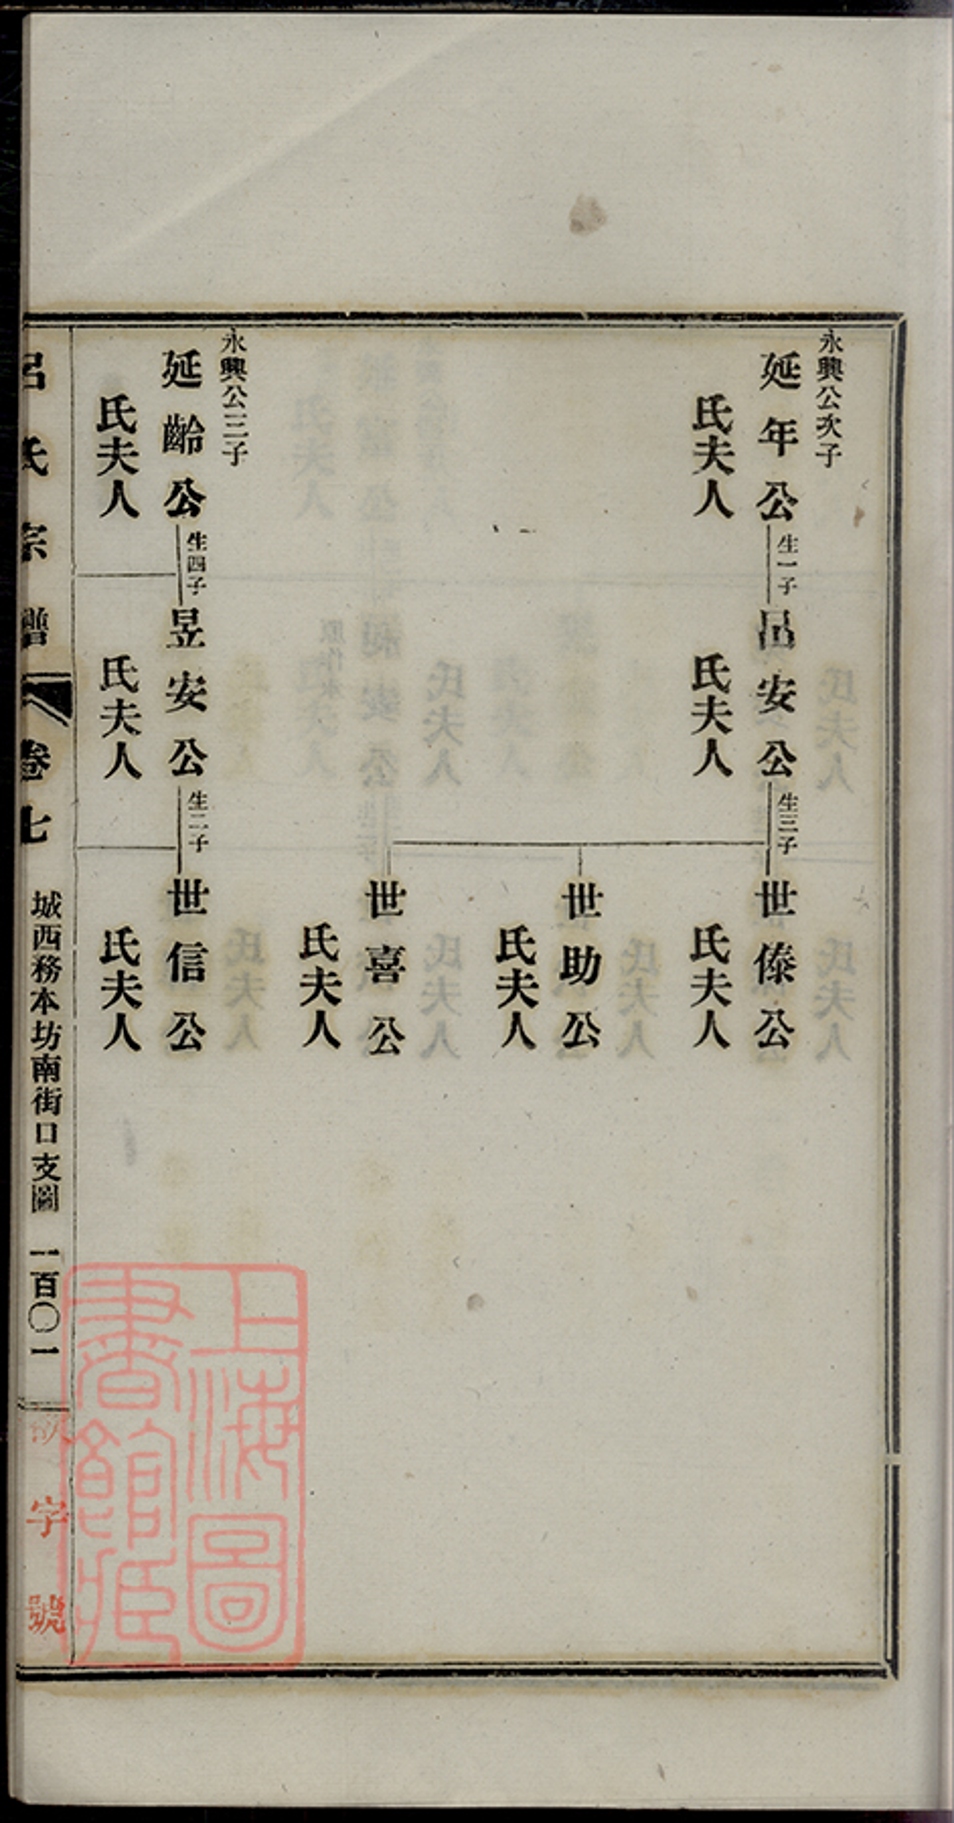 永興公次子
延年公
氏夫人
生一子
安公
氏夫人
生三子
世傣公
氏夫人
世助公
氏夫人
世喜公
氏夫人
永興公三子
延齡公
氏夫人
生四子
昱安公
氏夫人
生二子
世信公
氏夫人
呂氏宗譜
卷七
城西務本坊南街口支圖
一百〇一
字號
上海圖
書館藏